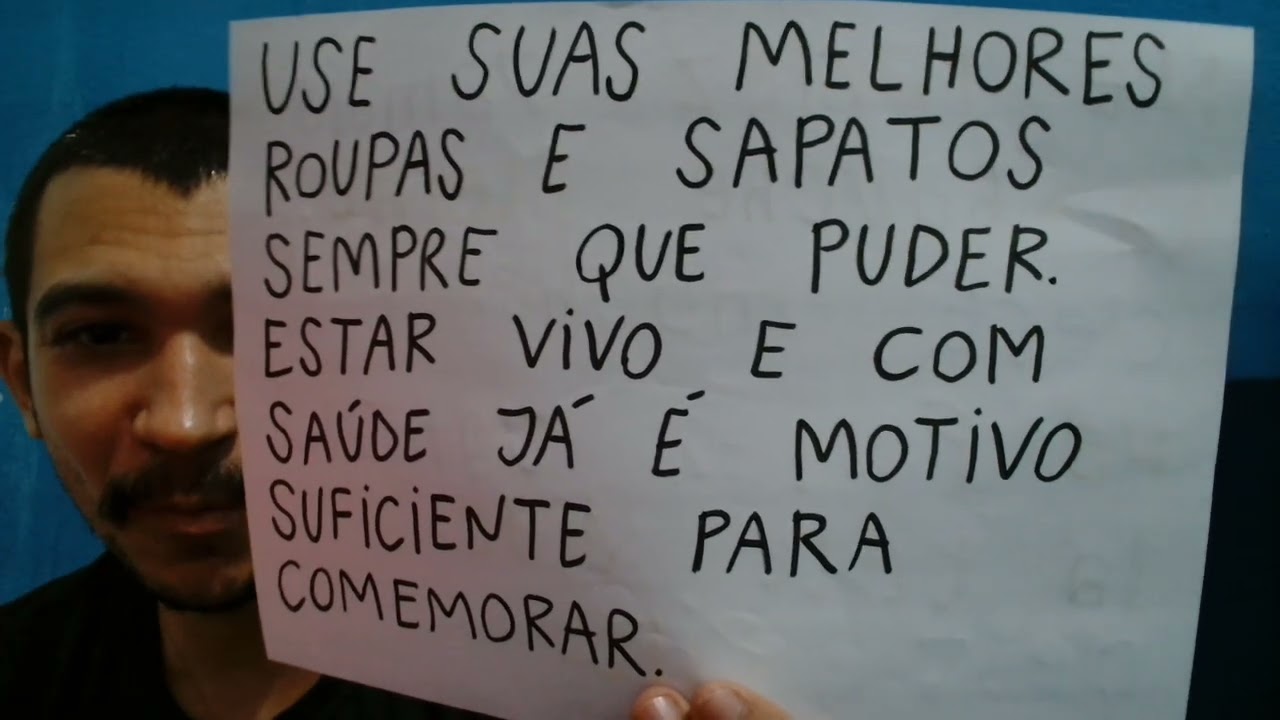 USE SUAS MELHORES
ROUPAS E SAPATOS
SEMPRE QUE PUDER.
ESTAR VIVO E COM
SAÚDE JÁ É MOTIVO
SUFICIENTE PARA
COMEMORAR.